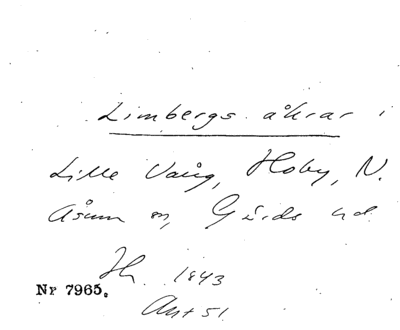 Limbergs åkrar i
Lille Vång, Hoby, N.
Åsum sn, Gärds hd
Hh. 1843
Nr 7965.
Akt 51